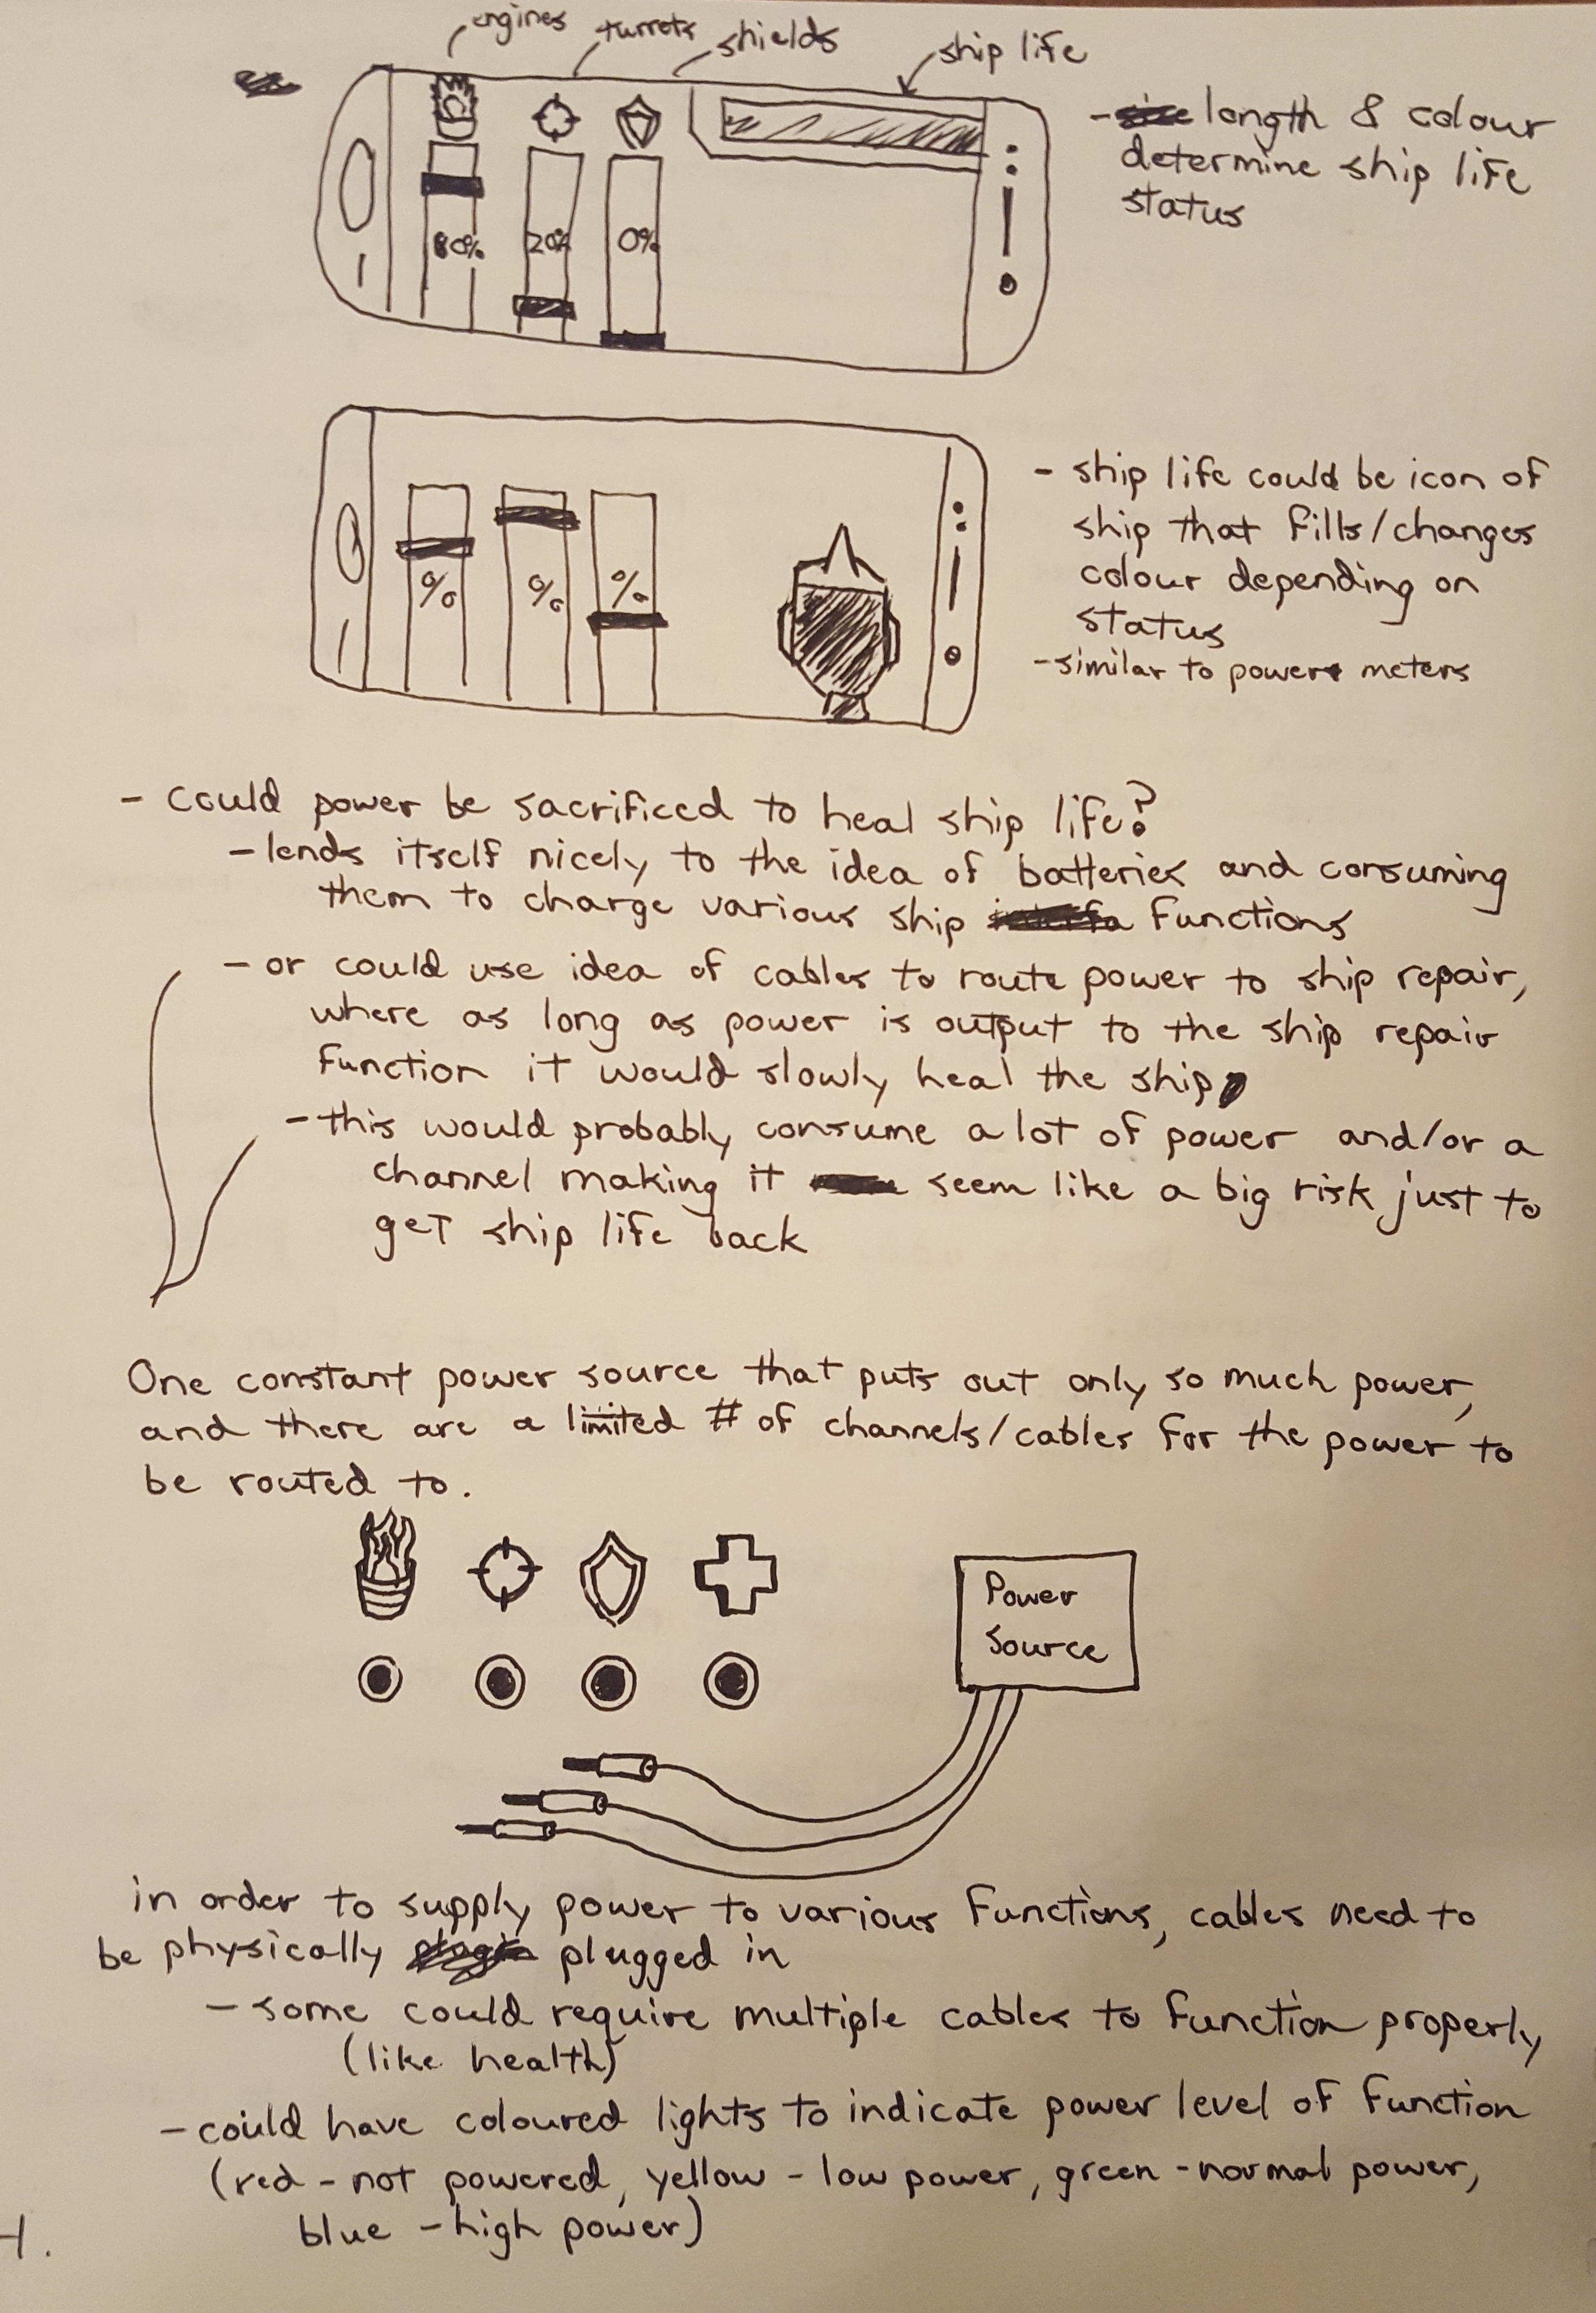 engines
turrets
shields
ship life
80%
20%
0%
- length & colour
determine ship life
status
%
%
%
- ship life could be icon of
ship that fills/changes
colour depending on
status
- similar to power meters
- could power be sacrificed to heal ship life?
- lends itself nicely to the idea of batteries and consuming
them to charge various ship functions
- or could use idea of cables to route power to ship repair,
where as long as power is output to the ship repair
function it would slowly heal the ship
- this would probably consume a lot of power and/or a
channel making it seem like a big risk just to
get ship life back
One constant power source that puts out only so much power,
and there are a limited # of channels/cables for the power to
be routed to.
Power
Source
in order to supply power to various functions, cables need to
be physically plugged in
- some could require multiple cables to function properly
(like health)
- could have coloured lights to indicate power level of function
(red - not powered, yellow - low power, green - normal power,
blue - high power)